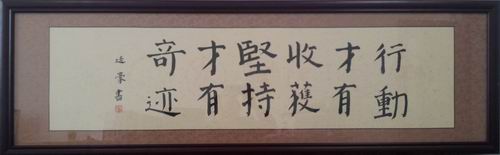 行動
才有
收获
堅持
才有
奇迹
廷豪書